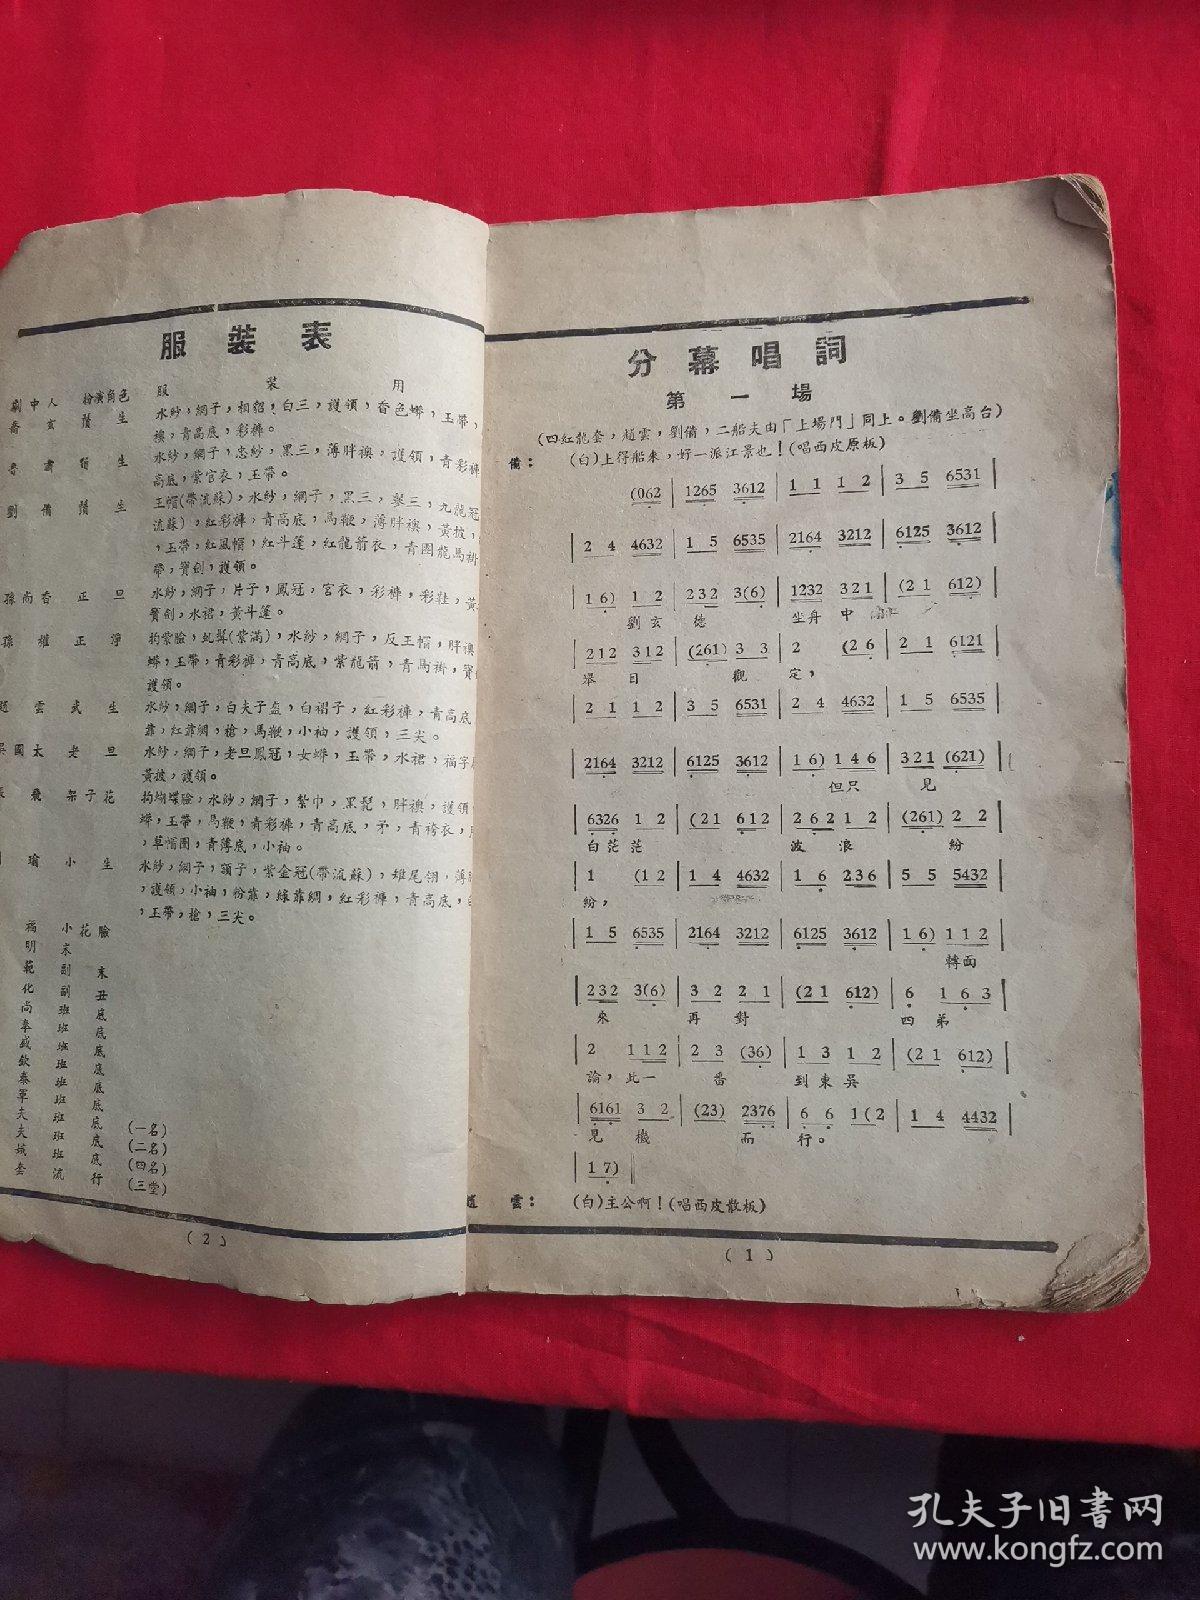 服裝表
劇中人 扮演角色 服裝用
喬玄 鬚生 水紗，網子，相貂，白三，護領，香色蟒，玉帶，
襖，青高底，彩褲。
魯肅 鬚生 水紗，網子，忠紗，黑三，薄胖襖，護領，青彩褲
高底，紫官衣，玉帶。
劉備 鬚生 王帽(帶流蘇)，水紗，網子，黑三，髯三，九龍冠
流蘇)，紅彩褲，青高底，馬鞭，薄胖襖，黃披，
，玉帶，紅風帽，紅斗篷，紅龍箭衣，青團龍馬褂
帶，寶劍，護領。
孫尚香 正旦 水紗，網子，片子，鳳冠，宮衣，彩褲，彩鞋，黃
寶劍，水裙，黃斗篷。
孫權 正淨 抅紫臉，虬髯(紫滿)，水紗，網子，反王帽，胖襖
蟒，玉帶，青彩褲，青高底，紫龍箭，青馬褂，寶
護領。
趙雲 武生 水紗，網子，白夫子盔，白褶子，紅彩褲，青高底
靠，紅靠綢，槍，馬鞭，小袖，護領，三尖。
吳國太 老旦 水紗，網子，老旦鳳冠，女蟒，玉帶，水裙，福字
黃披，護領。
張飛 架子花 抅蝴蝶臉，水紗，網子，紮巾，黑髡，胖襖，護領
蟒，玉帶，馬鞭，青彩褲，青高底，矛，青袴衣，
，草帽圈，青薄底，小袖。
瑜 小生 水紗，網子，額子，紫金冠(帶流蘇)，雉尾翎，薄
，護領，小袖，粉靠，綠靠綢，紅彩褲，青高底，
，玉帶，槍，三尖。
福 小花臉
明 末
範 副末
化 副丑
尚 班底
奉 班底
盛 班底
欽 班底
泰 班底
軍 班底
夫 班底 (一名)
夫 班底 (二名)
娥 班底 (四名)
套 流行 (三堂)
(2)
分幕唱詞
第一場
(四紅龍套，趙雲，劉備，二船夫由「上場門」同上。劉備坐高台)
備： (白)上得船來，好一派江景也！(唱西皮原板)
(062 | 1265 3612 | 1 1 1 2 | 3 5 6531 |
| 2 4 4632 | 1 5 6535 | 2164 3212 | 6125 3612 |
| 1 6) 1 2 | 232 3(6) | 1232 321 | (21 612) |
劉玄 德 坐舟 中
| 212 312 | (261) 3 3 | 2 (26 | 2 1 6121 |
舉 目 觀 定，
| 2 1 1 2 | 3 5 6531 | 2 4 4632 | 1 5 6535 |
| 2164 3212 | 6125 3612 | 1 6) 1 4 6 | 321 (621) |
但只 見
| 6326 1 2 | (21 612 | 262 1 2 | (261) 2 2 |
白茫茫 波 浪 紛
| 1 (12 | 1 4 4632 | 1 6 236 | 5 5 5432 |
紛，
| 1 5 6535 | 2164 3212 | 6125 3612 | 1 6) 1 1 2 |
轉面
| 232 3(6) | 3 2 2 1 | (21 612) | 6 1 6 3 |
來 再 對 四 弟
| 2 112 | 2 3 (36) | 1 3 1 2 | (21 612) |
論，此一 番 到東吳
| 6161 3 2 | (23) 2376 | 6 6 1(2 | 1 4 4432 |
見 機 而 行。
| 1 7) ‖
趙雲： (白)主公啊！(唱西皮散板)
(1)
孔夫子旧書网
www.kongfz.com